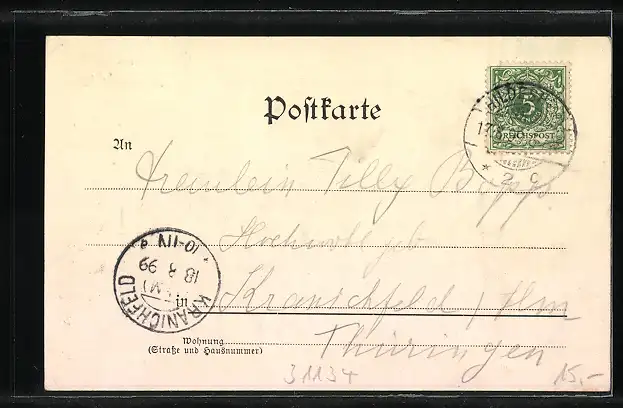 Postkarte
5
REICHSPOST
HILDESH
17
* 2 c
An
Fräulein Tilly Bopp
Hochwohlgeb
in Kranichfeld / Ilm
Thüringen
KRANICHFELD
18 3 99
10-11N.
Wohnung
(Straße und Hausnummer)
31134
15.-